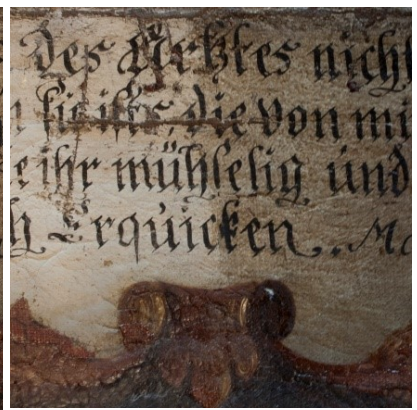 Des Artztes nicht
sie ists, die von mi
e ihr mühselig und
h Erquicken,. Ma